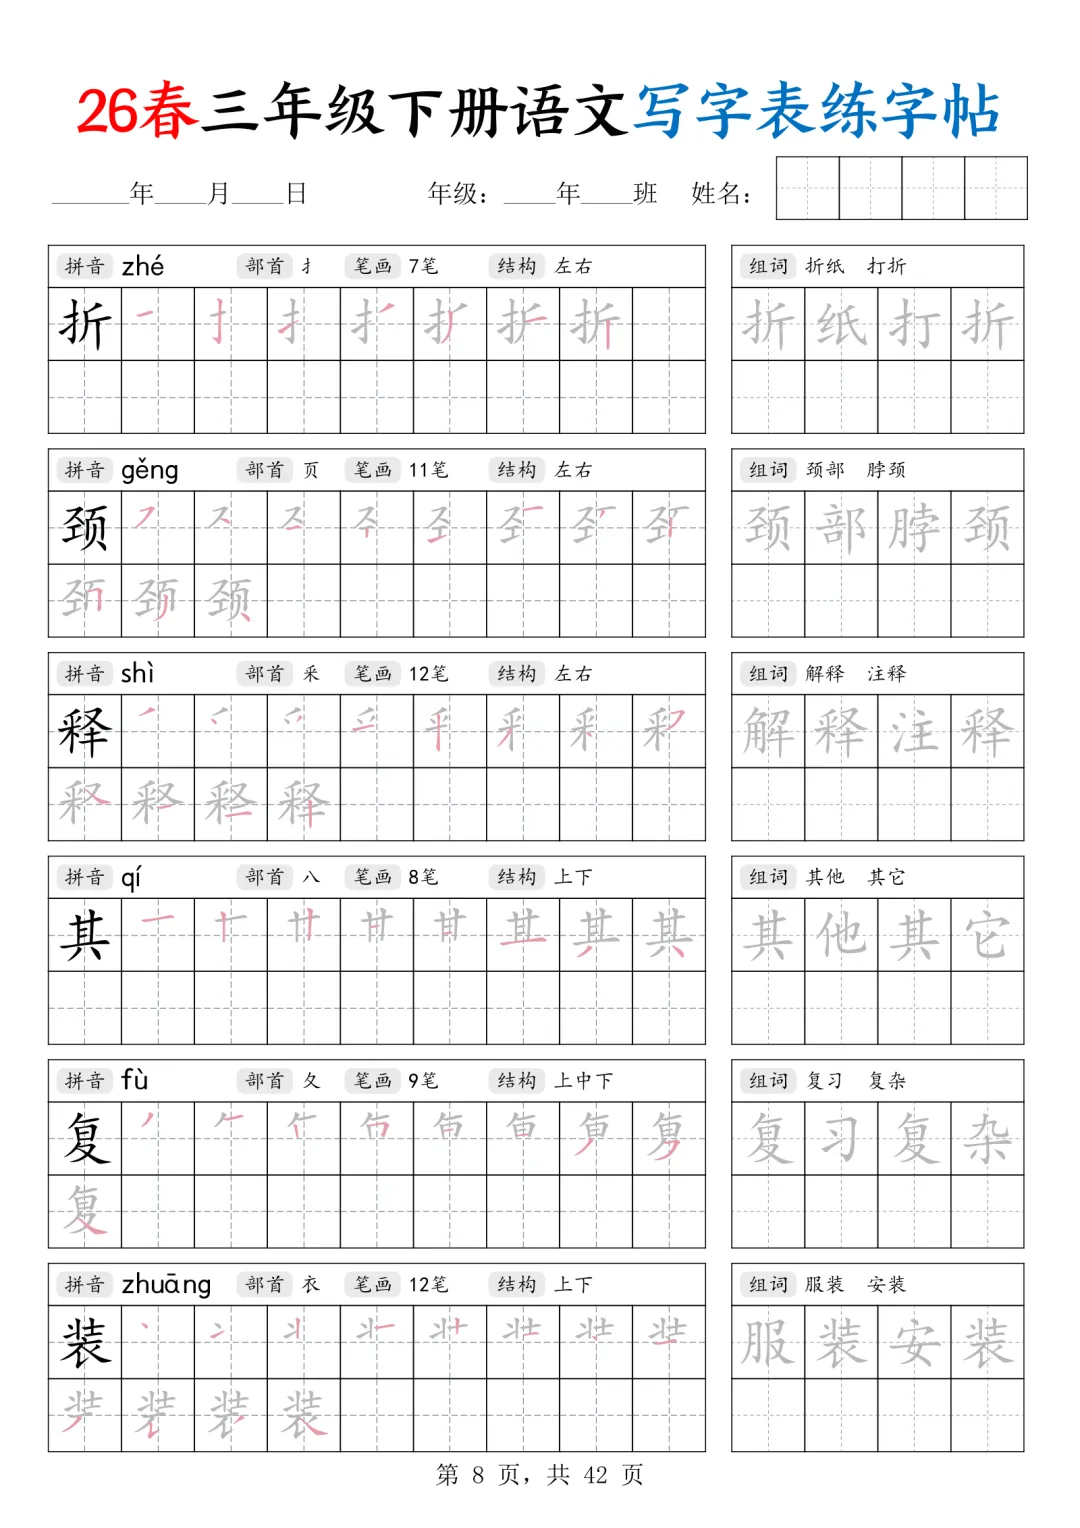 26春三年级下册语文写字表练字帖
______年____月____日 年级：____年____班 姓名：
拼音 zhé 部首 扌 笔画 7笔 结构 左右
组词 折纸 打折
折
折纸打折
拼音 gěng 部首 页 笔画 11笔 结构 左右
组词 颈部 脖颈
颈
颈部脖颈
拼音 shì 部首 釆 笔画 12笔 结构 左右
组词 解释 注释
释
解释注释
拼音 qí 部首 八 笔画 8笔 结构 上下
组词 其他 其它
其
其他其它
拼音 fù 部首 夂 笔画 9笔 结构 上中下
组词 复习 复杂
复
复习复杂
拼音 zhuāng 部首 衣 笔画 12笔 结构 上下
组词 服装 安装
装
服装安装
第 8 页，共 42 页